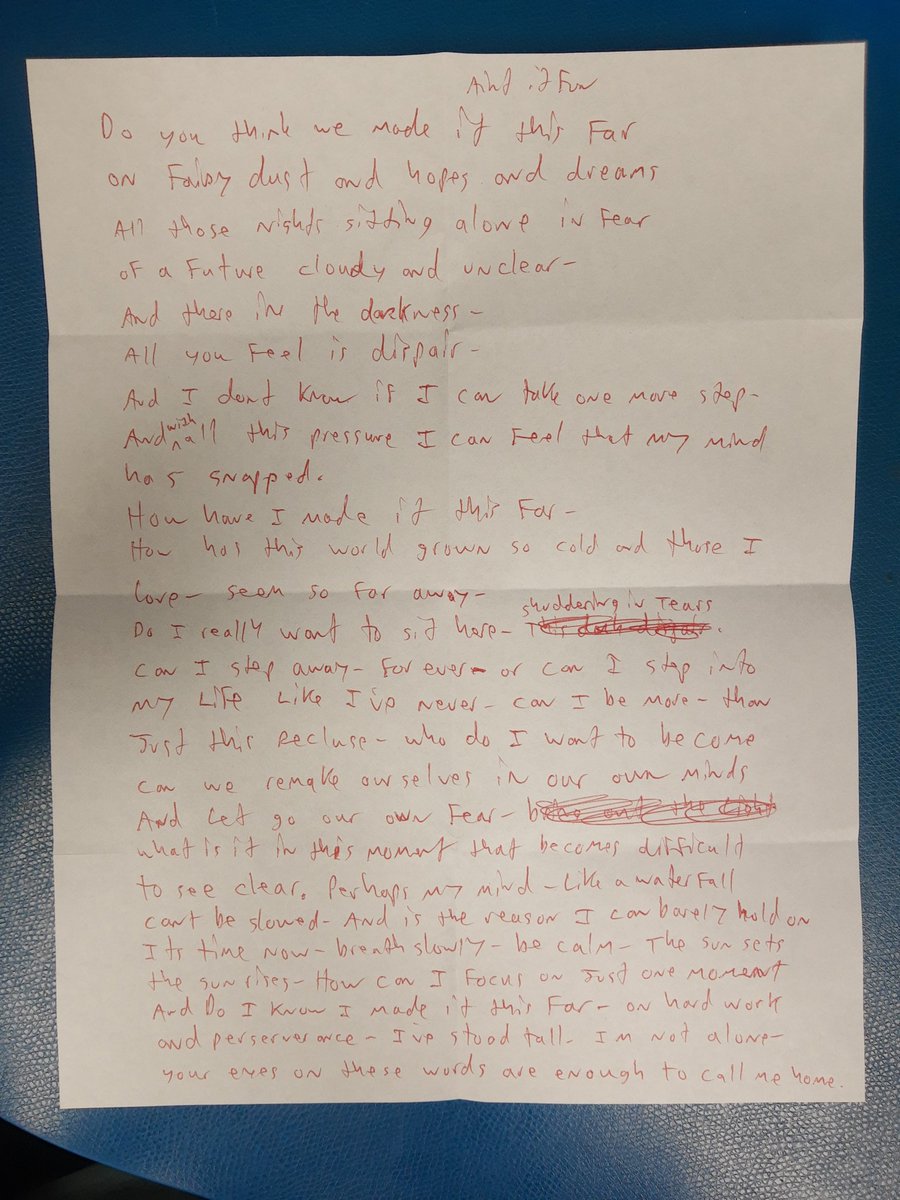 Aint it Fun
Do you think we made it this Far
on Fairy dust and hopes and dreams
All those nights sitting alone in Fear
of a Future cloudy and unclear-
And there in the darkness-
All you Feel is dispair-
And I dont know if I can take one more step-
And with all this pressure I can Feel that my mind
has snapped.
How have I made it this Far-
How has this world grown so cold and those I
love- seem so far away-
Do I really want to sit here- shuddering in Tears.
can I step away- For ever- or can I step into
my Life Like I've never- can I be more- than
Just this Recluse- who do I want to be come
can we remake ourselves in our own minds
And Let go our own Fear-
what is it in this moment that becomes difficult
to see clear. Perhaps my mind- Like a waterfall
cant be slowed- And is the reason I can barely hold on
Its time now- breath slowly- be calm- The sun sets
the sun rises- How can I Focus on Just one moment
And Do I Know I made it this Far- on hard work
and perserverance- I've stood tall- Im not alone-
your eyes on these words are enough to call me home.